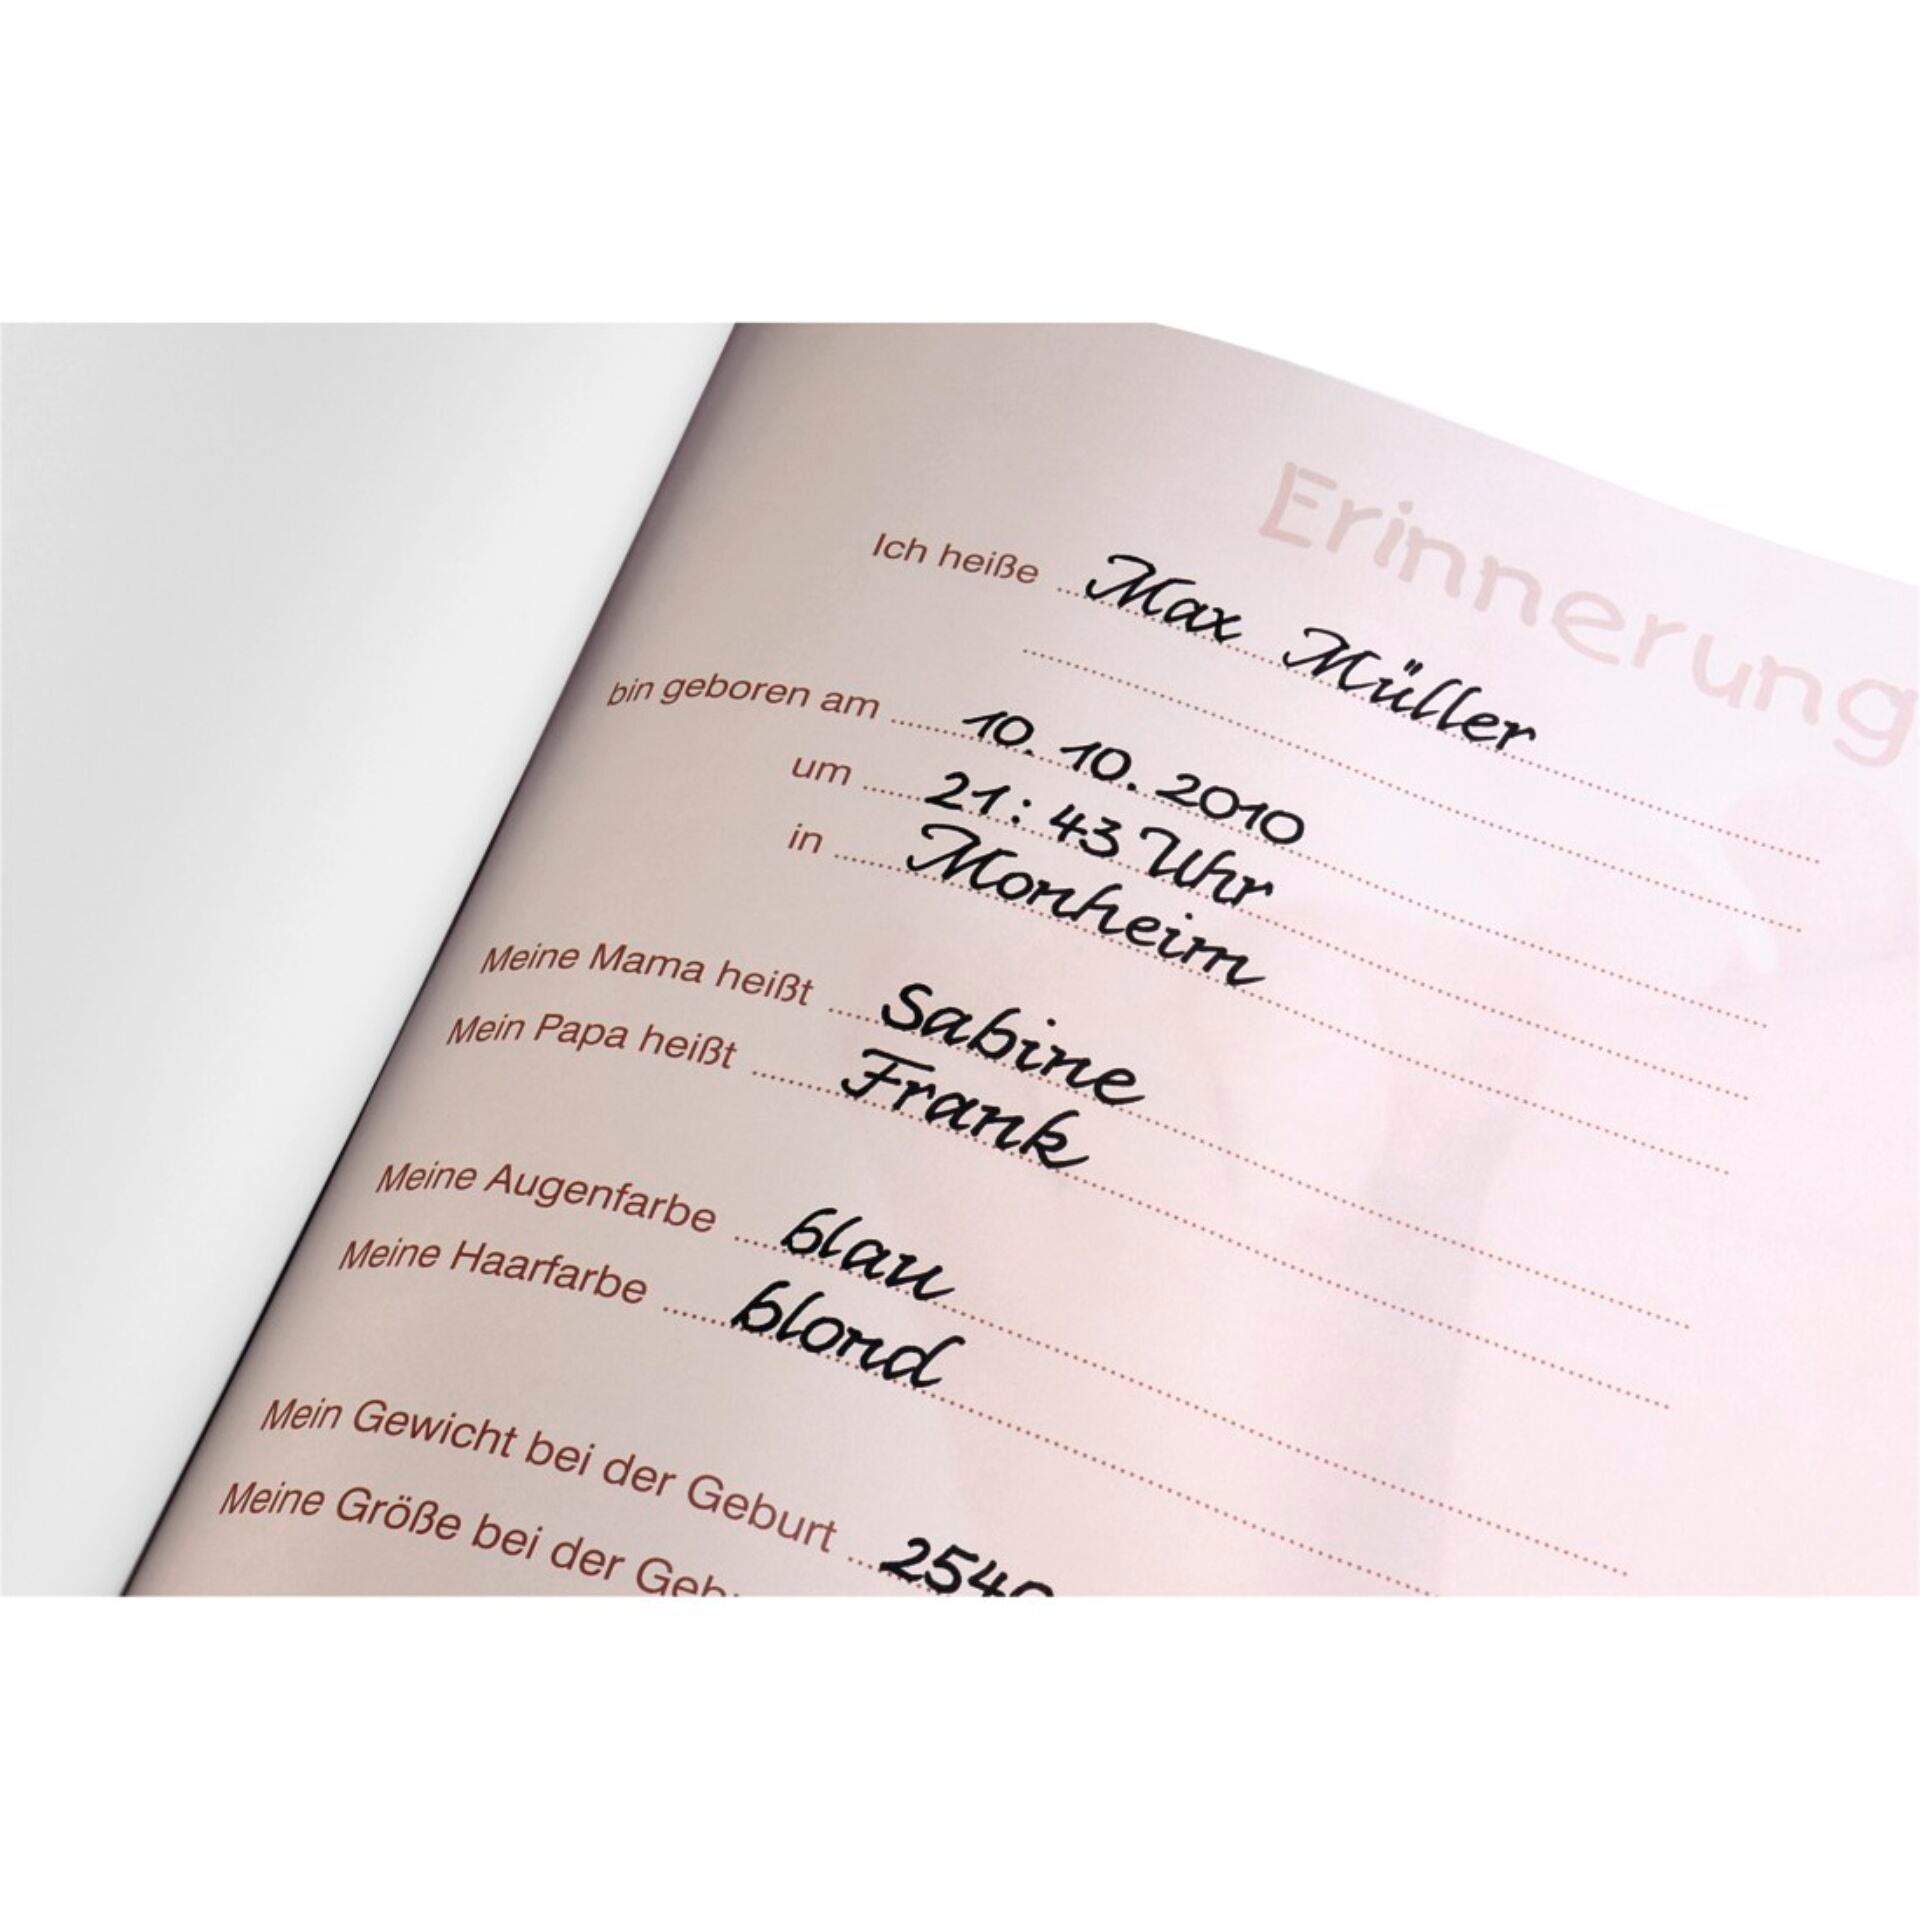 Erinnerung
Ich heiße Max Müller
bin geboren am 10. 10. 2010
um 21:43 Uhr
in Monheim
Meine Mama heißt Sabine
Mein Papa heißt Frank
Meine Augenfarbe blau
Meine Haarfarbe blond
Mein Gewicht bei der Geburt
Meine Größe bei der